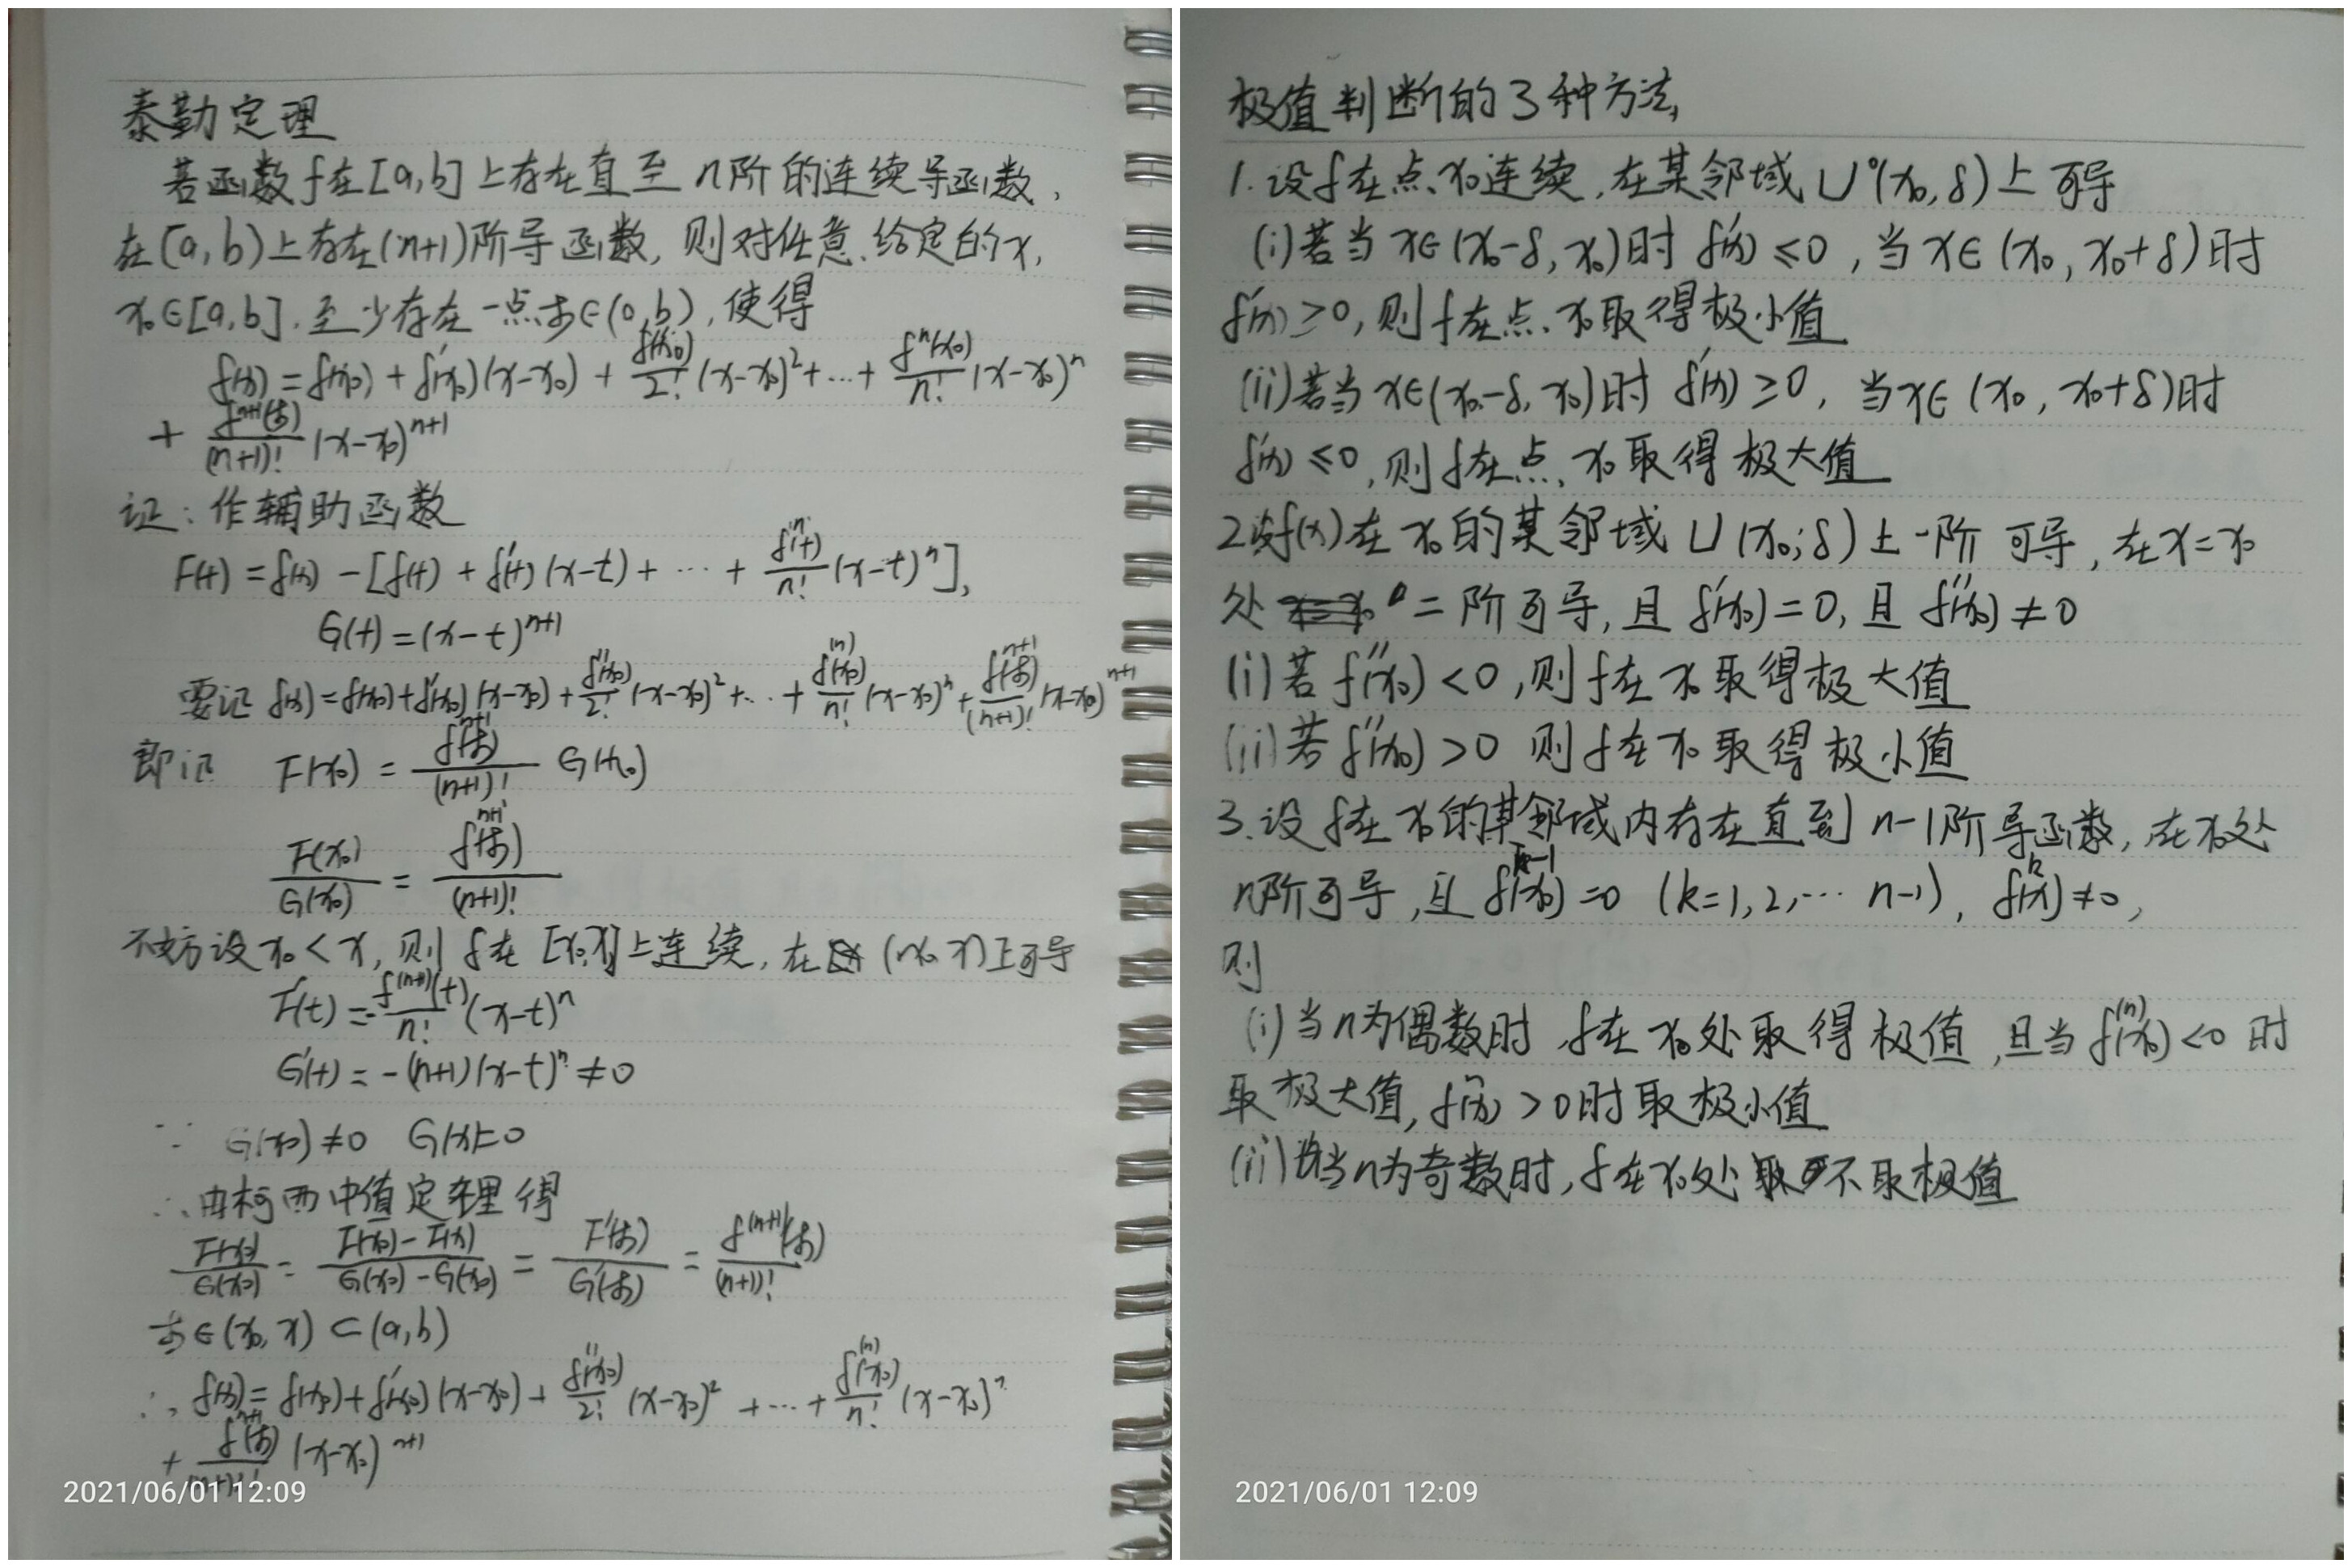 泰勒定理
若函数f在[a,b]上存在直至n阶的连续导函数,
在(a,b)上存在(n+1)阶导函数,则对任意给定的x,
x₀∈[a,b],至少存在一点ξ∈(a,b),使得
f(x)=f(x₀)+f'(x₀)(x-x₀)+f''(x₀)/2!(x-x₀)²+…+fⁿ(x₀)/n!(x-x₀)ⁿ
+fⁿ⁺¹(ξ)/(n+1)!(x-x₀)ⁿ⁺¹
证:作辅助函数
F(t)=f(x)-[f(t)+f'(t)(x-t)+…+fⁿ(t)/n!(x-t)ⁿ],
G(t)=(x-t)ⁿ⁺¹
要证 f(x)=f(x₀)+f'(x₀)(x-x₀)+f''(x₀)/2!(x-x₀)²+…+f⁽ⁿ⁾(x₀)/n!(x-x₀)ⁿ+fⁿ⁺¹(ξ)/(n+1)!(x-x₀)ⁿ⁺¹
即证 F(x₀)=fⁿ⁺¹(ξ)/(n+1)! G(x₀)
F(x₀)/G(x₀)=fⁿ⁺¹(ξ)/(n+1)!
不妨设x₀<x,则f在[x₀,x]上连续,在(x₀,x)上可导
F'(t)=-f⁽ⁿ⁺¹⁾(t)/n!(x-t)ⁿ
G'(t)=-(n+1)(x-t)ⁿ≠0
∵ G(x₀)≠0 G(x)=0
∴由柯西中值定理得
F(x₀)/G(x₀)=F(x₀)-F(x)/G(x₀)-G(x₀)=F'(ξ)/G'(ξ)=f⁽ⁿ⁺¹⁾(ξ)/(n+1)!
ξ∈(x₀,x)⊂(a,b)
∴f(x)=f(x₀)+f'(x₀)(x-x₀)+f''(x₀)/2!(x-x₀)²+…+f⁽ⁿ⁾(x₀)/n!(x-x₀)ⁿ
+fⁿ⁺¹(ξ)/(n+1)!(x-x₀)ⁿ⁺¹
2021/06/01 12:09
极值判断的3种方法
1.设f在点x₀连续,在某邻域U°(x₀,δ)上可导
(i)若当x∈(x₀-δ,x₀)时f'(x)≤0,当x∈(x₀,x₀+δ)时
f'(x)≥0,则f在点x₀取得极小值
(ii)若当x∈(x₀-δ,x₀)时f'(x)≥0,当x∈(x₀,x₀+δ)时
f'(x)≤0,则f在点x₀取得极大值
2.设f(x)在x₀的某邻域U(x₀;δ)上一阶可导,在x=x₀
处二阶可导,且f'(x₀)=0,且f''(x₀)≠0
(i)若f''(x₀)<0,则f在x₀取得极大值
(ii)若f''(x₀)>0 则f在x₀取得极小值
3.设f在x₀的某邻域内存在直到n-1阶导函数,在x₀处
n阶可导,且fᵏ⁻¹(x₀)=0 (k=1,2,…n-1),fⁿ(x)≠0,
则
(i)当n为偶数时,f在x₀处取得极值,且当f⁽ⁿ⁾(x₀)<0时
取极大值,fⁿ(x₀)>0时取极小值
(ii)当n为奇数时,f在x₀处不取极值
2021/06/01 12:09